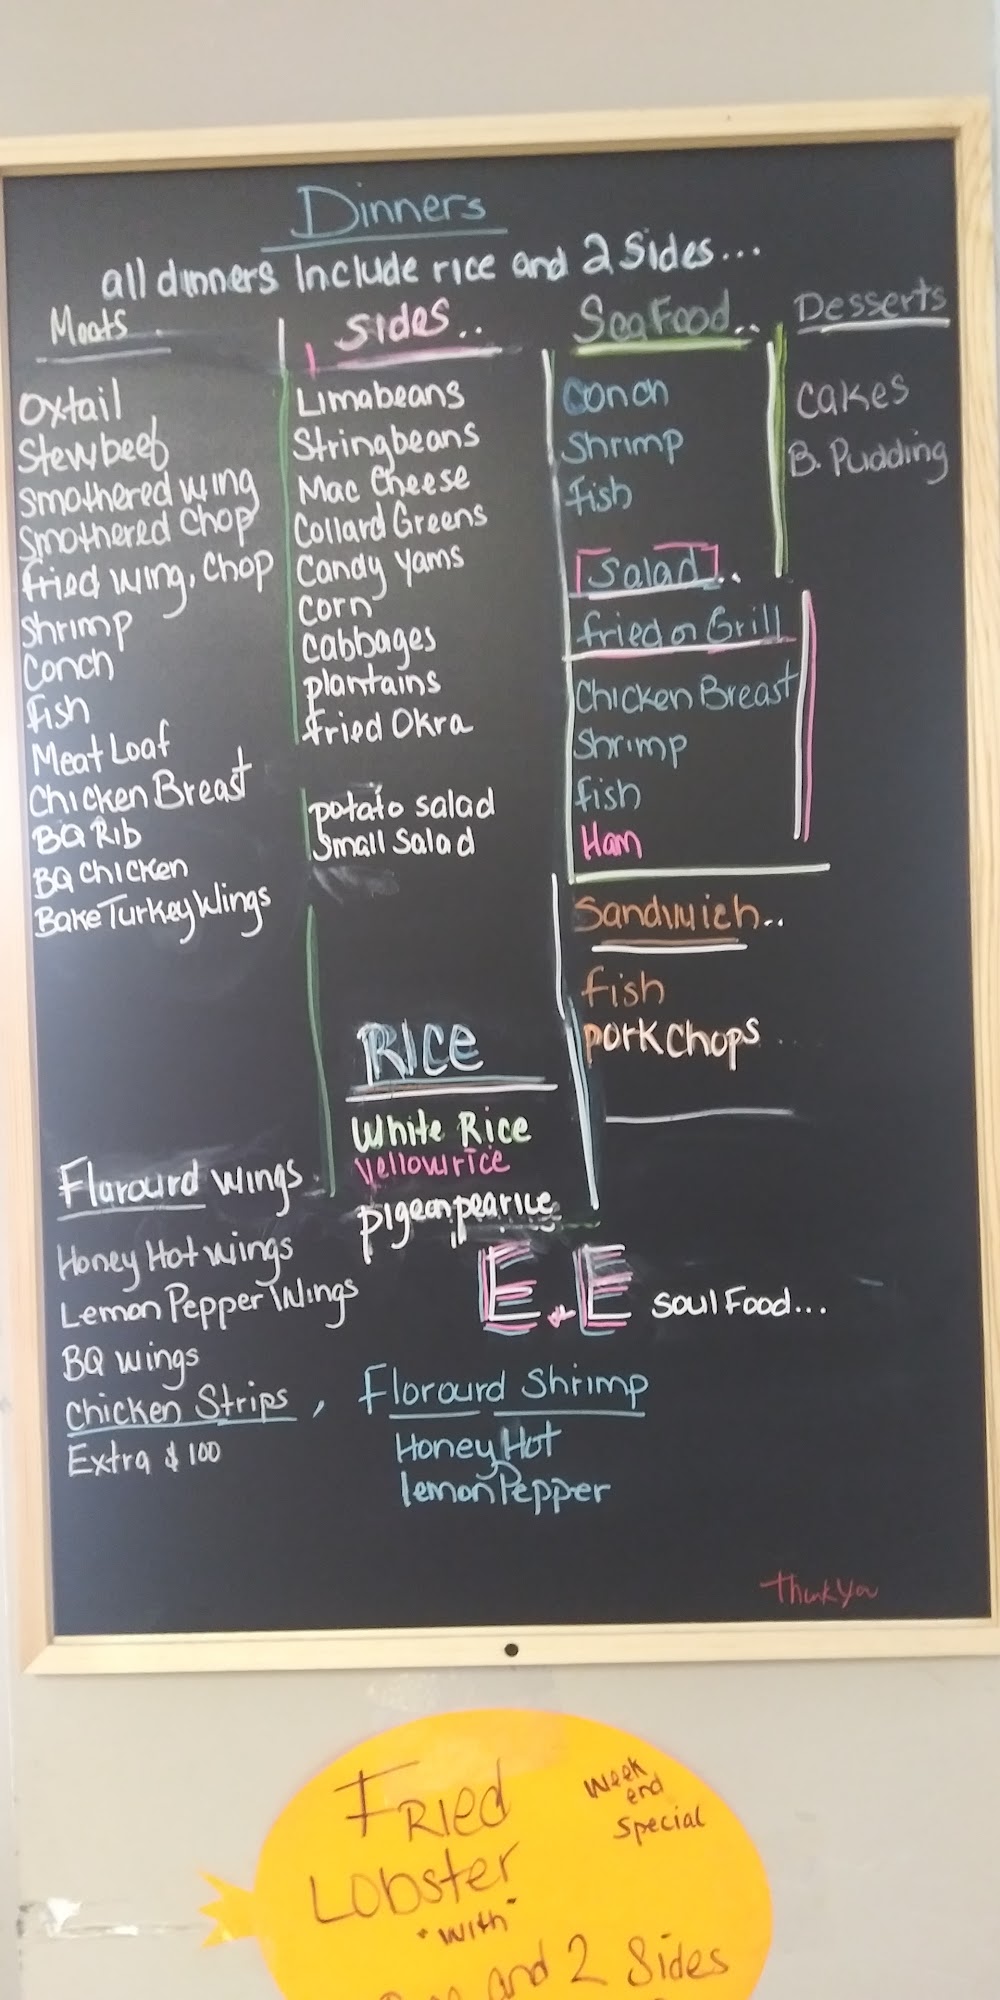 Dinners
all dinners Include rice and 2 Sides...
Meats
Oxtail
Stewbeef
Smothered wing
Smothered Chop
fried wing, Chop
Shrimp
Conch
fish
Meat Loaf
Chicken Breast
BQ Rib
BQ Chicken
Bake Turkey Wings
Sides..
Limabeans
Stringbeans
Mac Cheese
Collard Greens
Candy Yams
Corn
Cabbages
plantains
fried Okra
potato salad
Small Salad
SeaFood..
Conch
Shrimp
fish
Salad..
fried or Grill
Chicken Breast
Shrimp
fish
Ham
Sandwich..
fish
pork Chops
Desserts
Cakes
B. Pudding
RICE
White Rice
Yellow rice
pigeon pea rice
Flarourd wings
Honey Hot wings
Lemon Pepper Wings
BQ wings
Chicken Strips,
Extra $ 100
E & E Soul Food...
Florourd Shrimp
Honey Hot
lemon Pepper
Thank You
Fried
Lobster
"with"
and 2 Sides
Week
end
Special